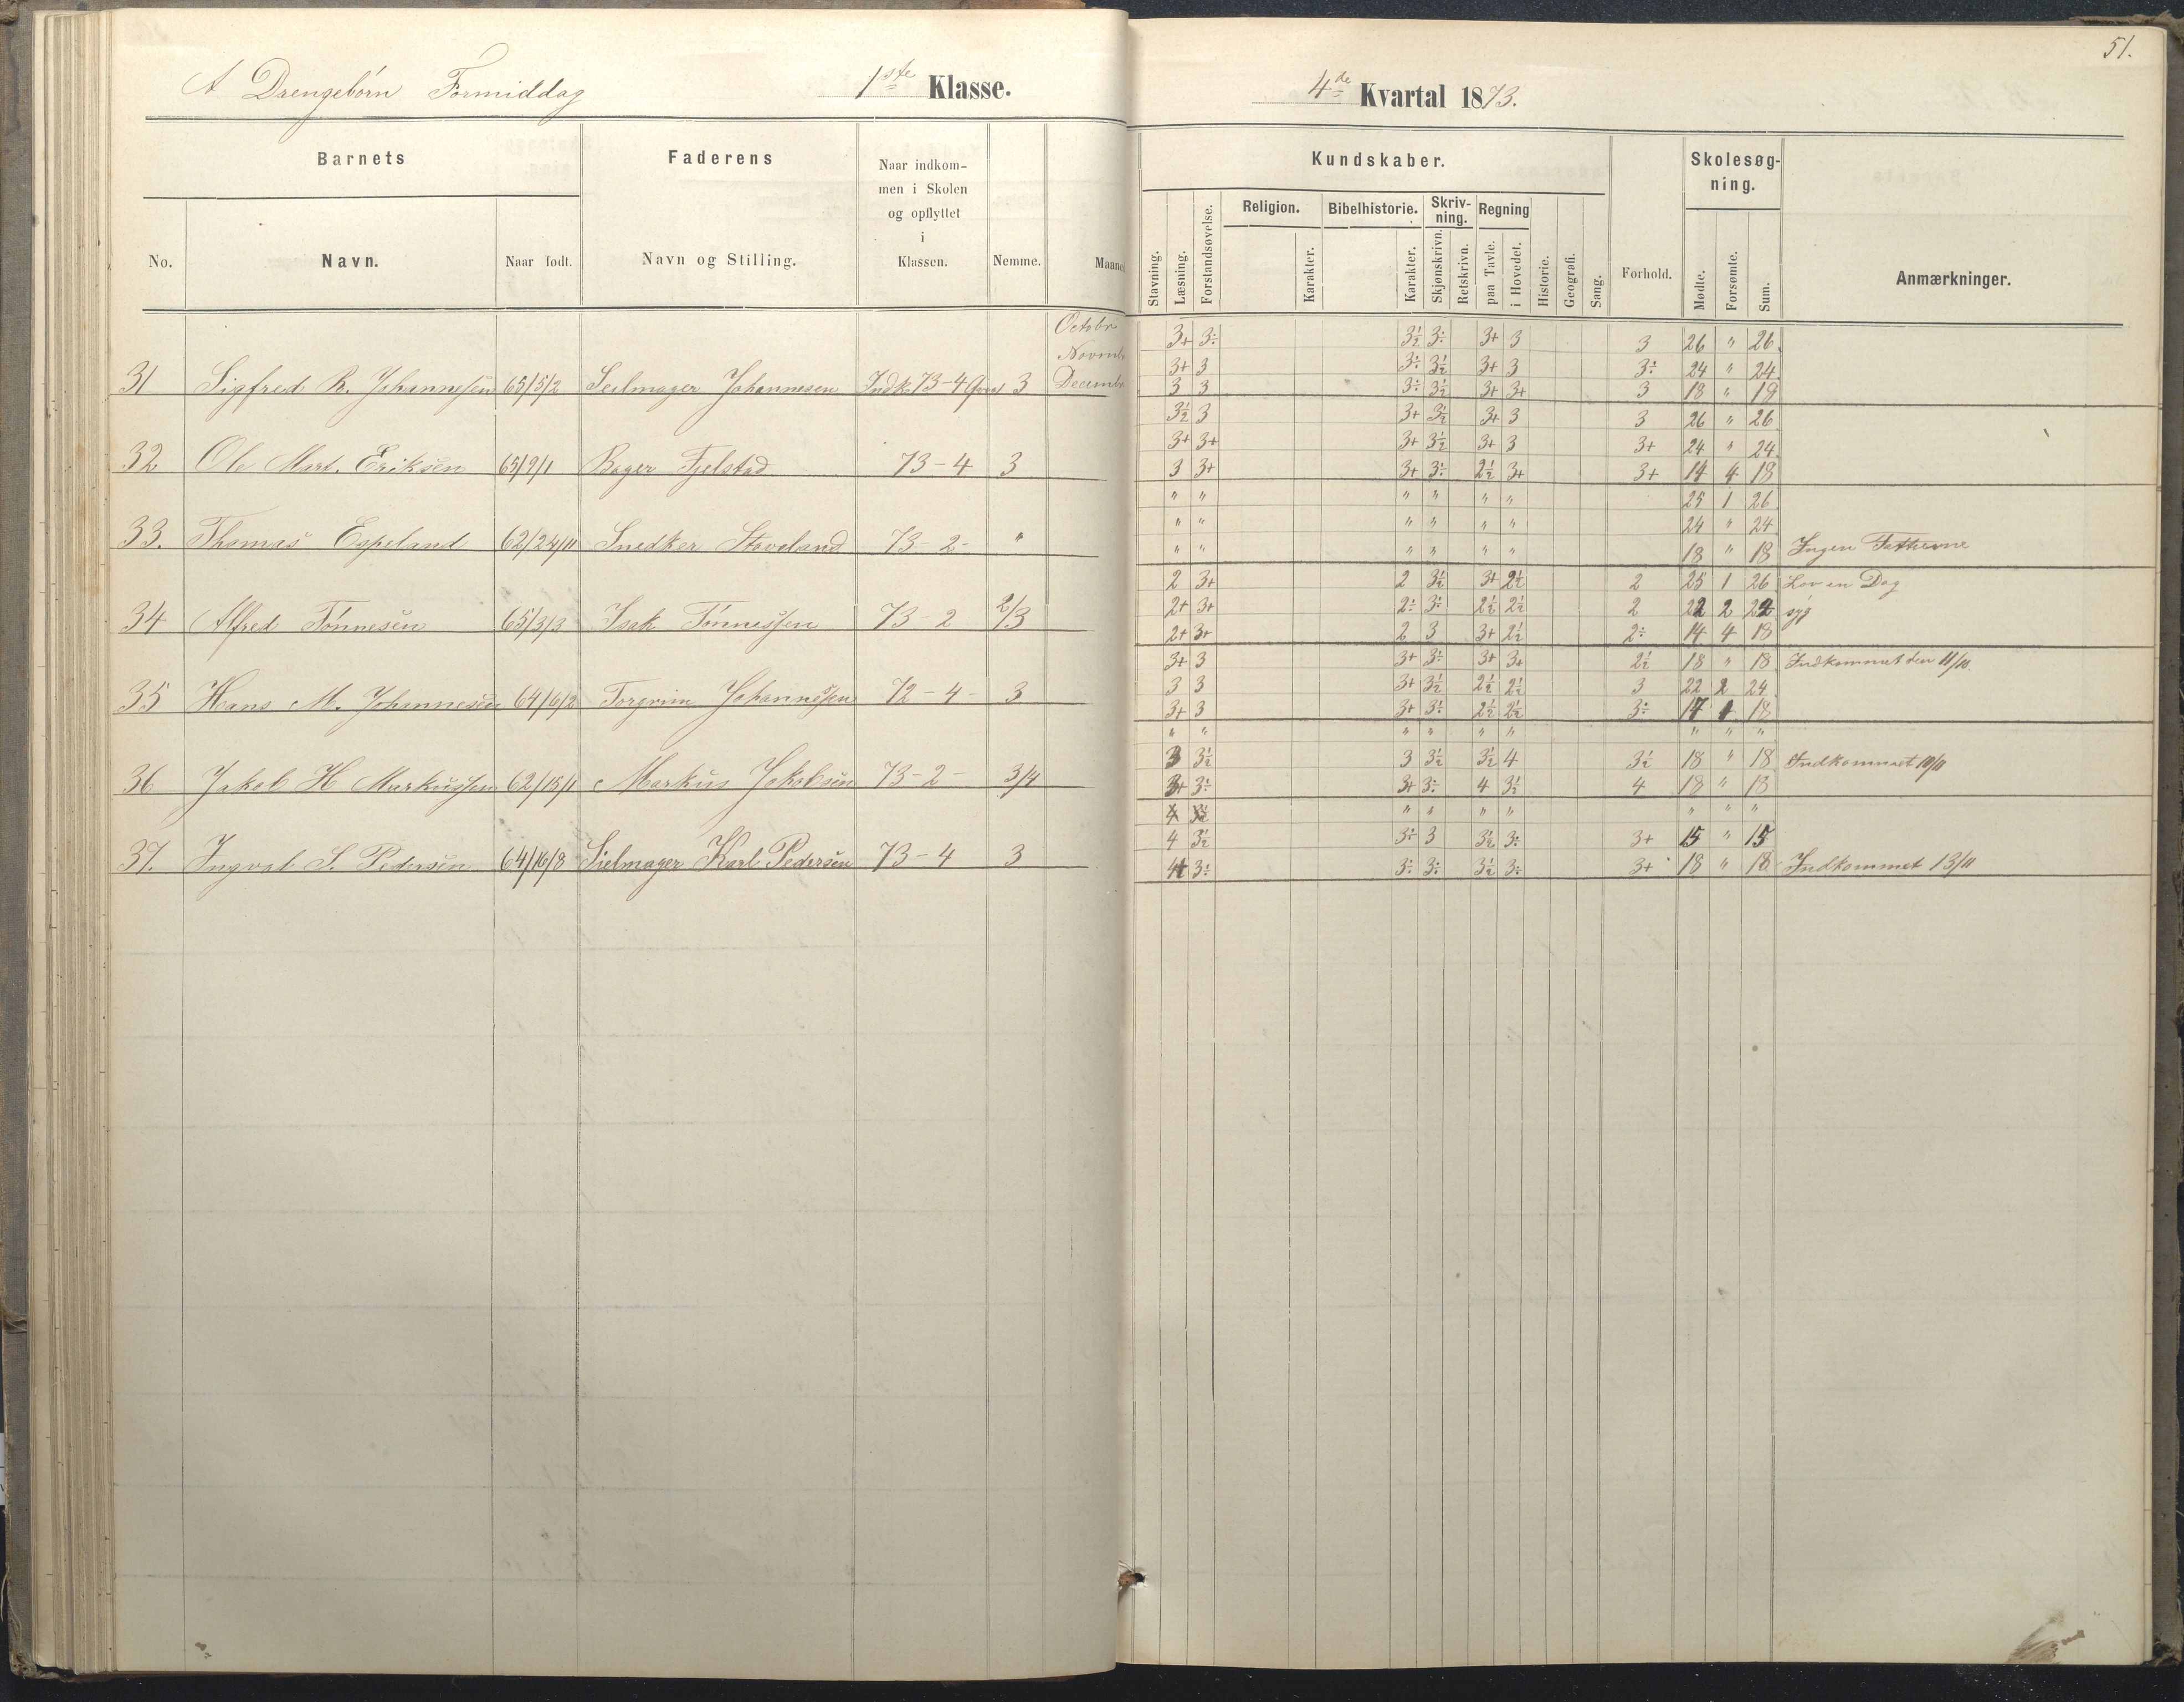 51.
A Drengebørn Formiddag 1ste Klasse. 4de Kvartal 1873.
Barnets Faderens Naar indkommen i Skolen og opflyttet i Klassen. Nemme. Maaned Kundskaber. Forhold. Skolesøgning. Anmærkninger.
No. Navn. Naar født. Navn og Stilling. Stavning. Læsning. Forstandsøvelse. Religion. Karakter. Bibelhistorie. Karakter. Skrivning. Skjønskrivn. Retskrivn. Regning paa Tavle. i Hovedet. Historie. Geografi. Sang. Mødte. Forsømte. Sum.
Octobr 3+ 3÷ 3½ 3÷ 3+ 3 3 26 " 26
Novemb 3+ 3 3÷ 3½ 3+ 3 3÷ 24 " 24
31 Sigfred R. Johannesen 65/5/2 Seilmager Johannesen Indk 73-4 3 Decemb 3 3 3÷ 3½ 3+ 3+ 3 18 " 18
3½ 3 3+ 3½ 3+ 3 3 26 " 26
3+ 3+ 3+ 3½ 3+ 3 3+ 24 " 24
32 Ole Mart. Eriksen 65/9/1 Bager Fjelstad 73-4 3 3 3+ 3+ 3÷ 2½ 3+ 3+ 14 4 18
" " " " " " 25 1 26
" " " " " " 24 " 24
33. Thomas Espeland 62/24/11 Snedker Staveland 73-2- " " " " " " " 18 " 18 Ingen
2 3+ 2 3½ 3+ 2½ 2 25 1 26 Lov en Dag
2+ 3+ 2÷ 3÷ 2½ 2½ 2 22 2 24 syg
34 Alfred Tönnesen 65/3/3 Isak Tönnessen 73-2 2/3 2+ 3+ 2 3 3+ 2½ 2÷ 14 4 18
3+ 3 3+ 3÷ 3+ 3+ 2½ 18 " 18 Indkommet den 11/10.
3 3 3+ 3½ 2½ 2½ 3 22 2 24
35 Hans M. Johannesen 64/6/2 Torgrim Johannesen 72-4- 3 3+ 3 3+ 3÷ 2½ 2½ 3÷ 17 1 18
" " " " " " " " "
3 3½ 3 3½ 3½ 4 3½ 18 " 18 Indkommet 10/11
36 Jakob H Markussen 62/15/1 Markus Jakobsen 73-2- 3/4 3+ 3÷ 3+ 3÷ 4 3½ 4 18 " 18
" " " " " " "
4 3½ 3÷ 3 3½ 3÷ 3+ 15 " 15
37. Ingval S. Pedersen 64/16/8 Sielmager Karl Pedersen 73-4 3 4+ 3÷ 3÷ 3÷ 3½ 3÷ 3+ 18 " 18 Indkommet 13/11